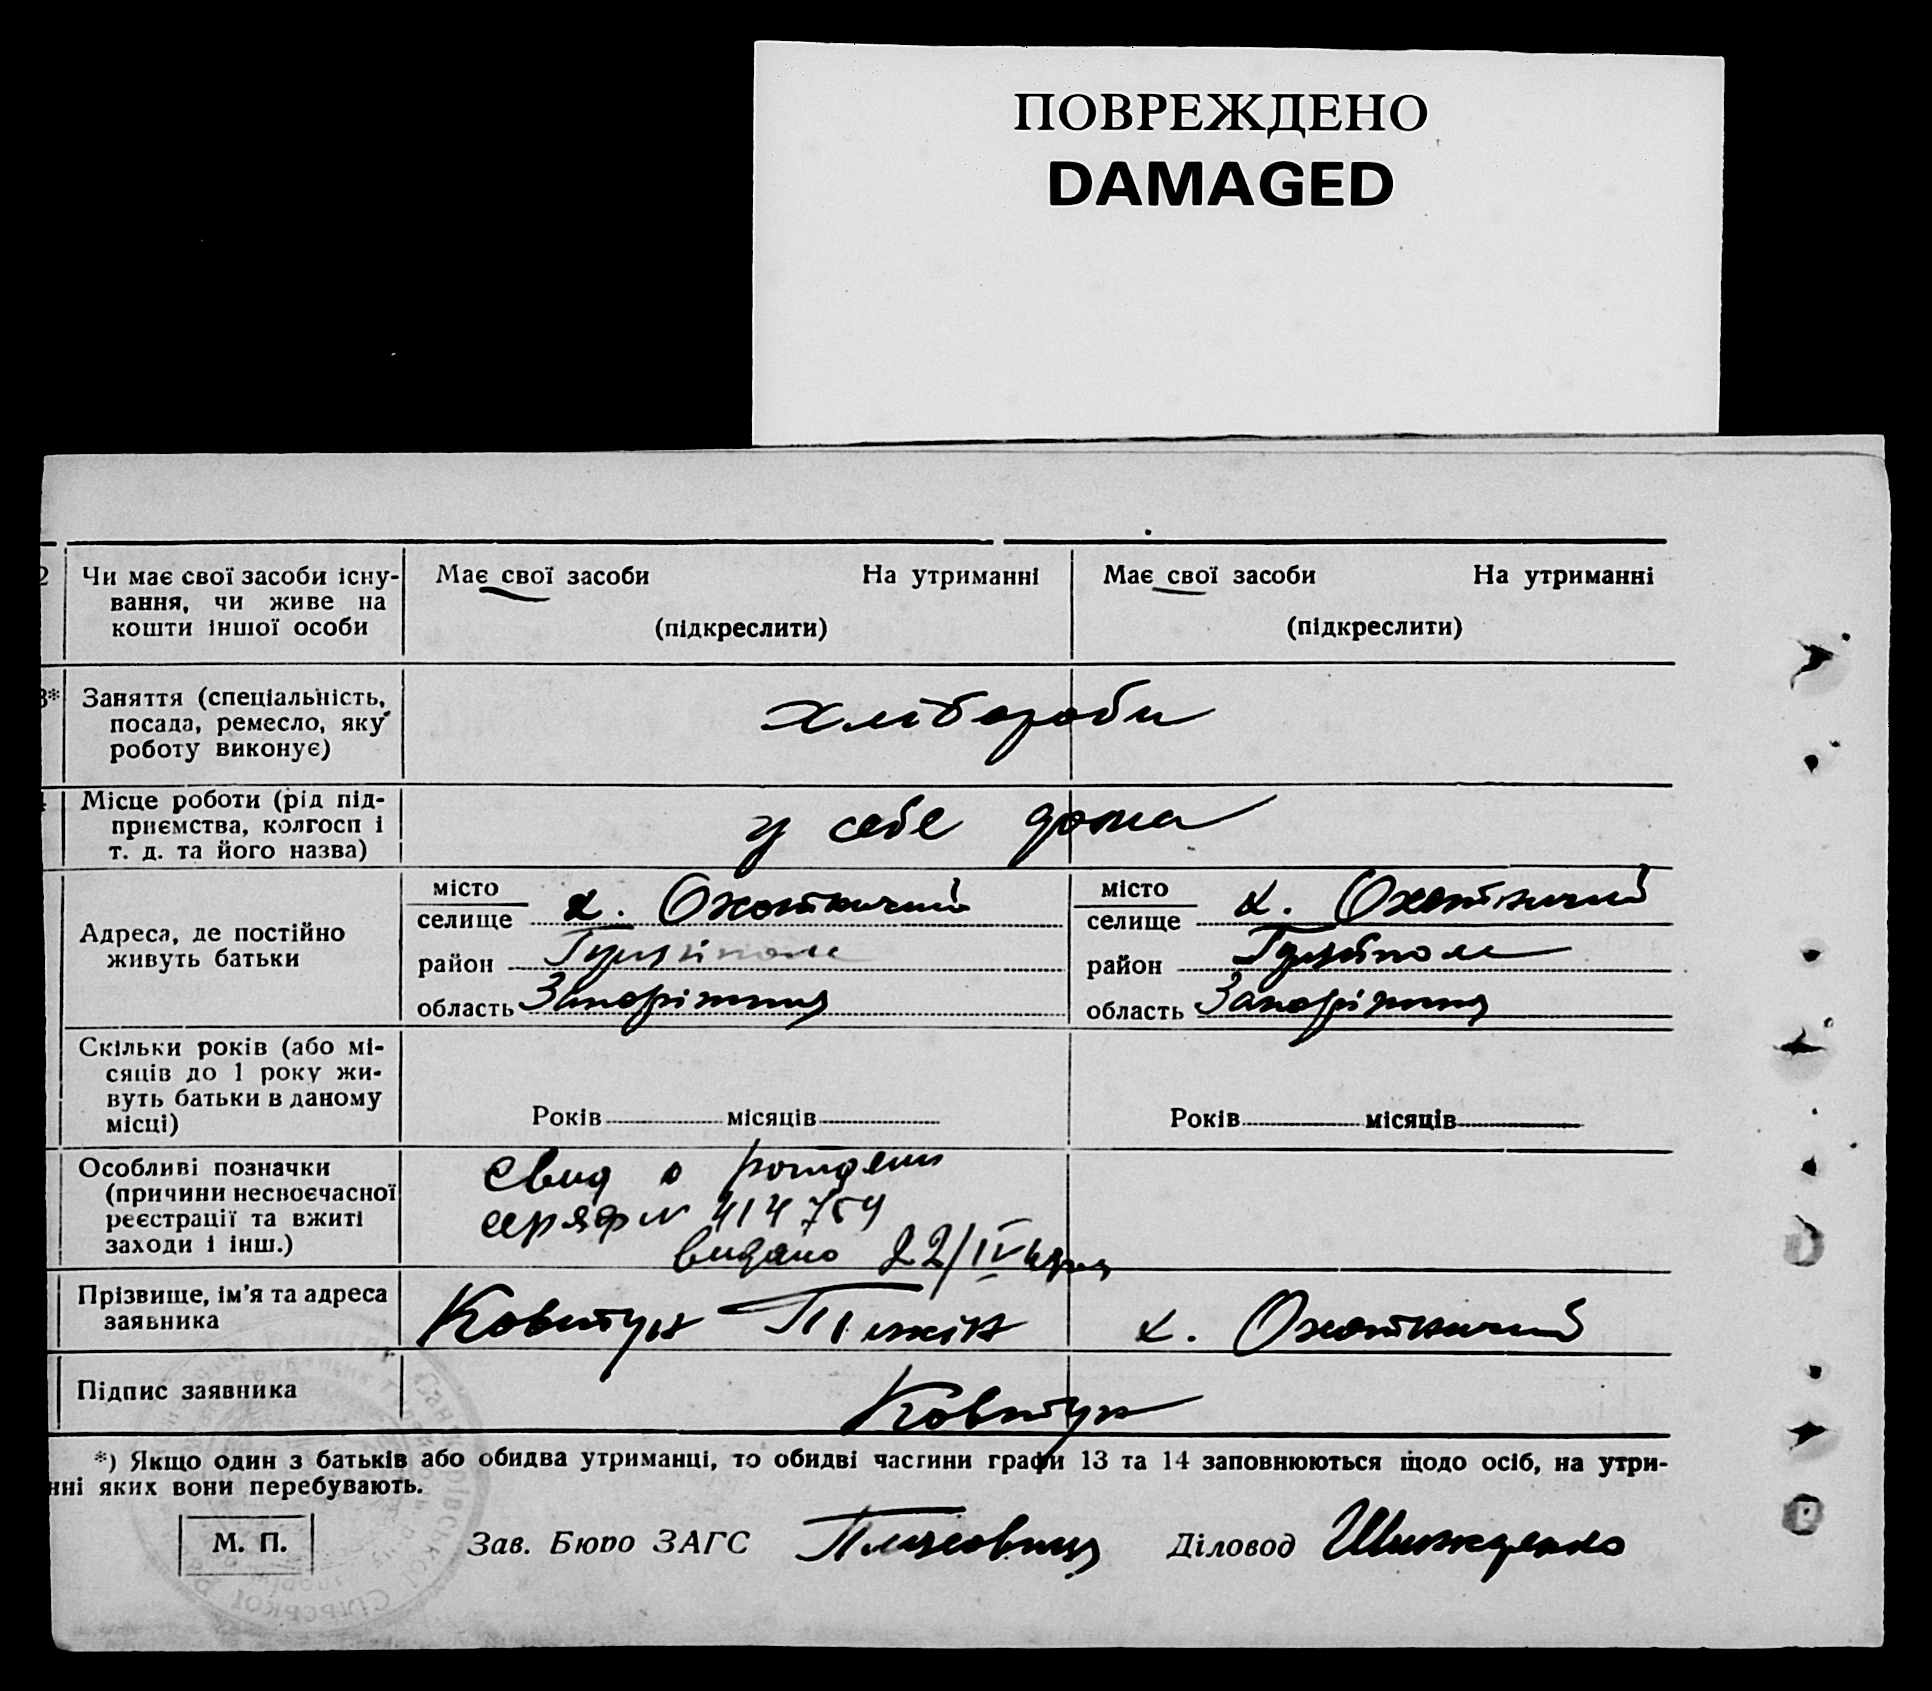 ПОВРЕЖДЕНО
DAMAGED
2 Чи має свої засоби існу- Має свої засоби На утриманні Має свої засоби На утриманні
вання, чи живе на
кошти іншої особи (підкреслити) (підкреслити)
3* Заняття (спеціальність,
посада, ремесло, яку хлібороби
роботу виконує)
Місце роботи (рід під-
приємства, колгосп і у себе дома
т. д. та його назва)
місто місто
селище х. Охотничий селище х. Охотничий
Адреса, де постійно
живуть батьки
район Гуляйполе район Гуляйполе
область Запоріжжя область Запоріжжя
Скільки років (або мі-
сяців до 1 року жи-
вуть батьки в даному
місці) Років місяців Років місяців
Особливі позначки Свид о рождени
(причини несвоєчасної
реєстрації та вжиті 414759
заходи і інш.) видано 22/IV
Прізвище, ім'я та адреса
заявника Ковтун х. Охотничий
Підпис заявника Ковтун
*) Якщо один з батьків або обидва утриманці, то обидві частини графи 13 та 14 заповнюються щодо осіб, на утри-
нні яких вони перебувають.
М. П. Зав. Бюро ЗАГС Діловод